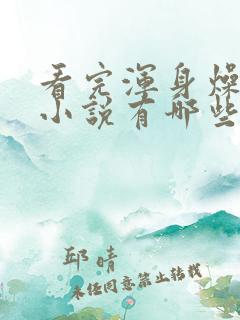 看完浑身燥
小说有哪些
邱晴
未经同意禁止转载